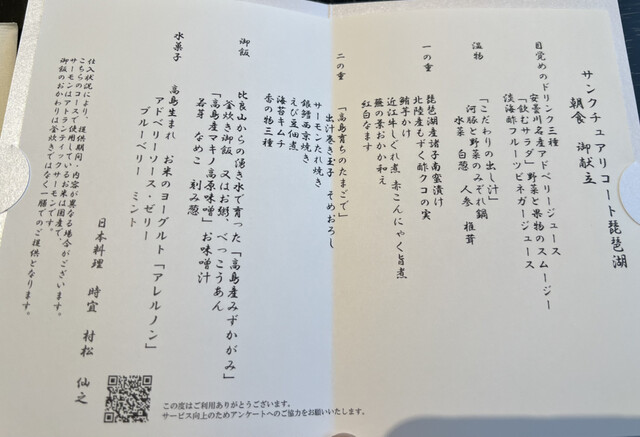 サンクチュアリコート琵琶湖
朝食 御献立
目覚めのドリンク三種
安曇川名産アドベリージュース
「飲むサラダ」野菜と果物のスムージー
淡海酢フルーツビネガージュース
温物
「こだわりの出し汁」
河豚と野菜のみぞれ鍋
水菜 白葱 人参 椎茸
一の重
琵琶湖産諸子南蛮漬け
北陸産もずく酢クコの実
鮪芋かけ
近江牛しぐれ煮 赤こんにゃく旨煮
蕪の葉おかか和え
紅白なます
二の重
「高島育ちのたまごで」
出汁巻き玉子 そめおろし
サーモンたれ焼き
銀鱈西京焼き
えび豆佃煮
海苔キムチ
香の物三種
御飯
比良山からの湧き水で育った「高島産みずかがみ」
釜炊き御飯 又はお粥、べっこうあん
「高島産マキノ高原味噌」お味噌汁
若芽 なめこ 刻み葱
水菓子
高島生まれ お米のヨーグルト「アレルノン」
アドベリーソース・ゼリー
ブルーベリー ミント
日本料理 時宜 村松 仙之
仕入状況により、提供期間・内容が異なる場合がございます。
こちらのコースで使用しているお米は国産で、
サーモンはアトランティックサーモンです。
御飯のおかわりは釜炊きではなく一膳でのご提供となります。
この度はご利用ありがとうございます。
サービス向上のためアンケートへのご協力をお願いいたします。